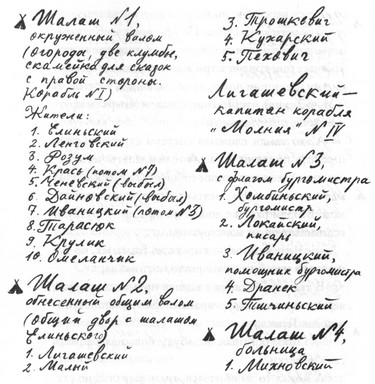 Шалаш №1,
окруженный валом
(огорода, две клумбы,
скамейка для сказок
с правой стороны.
Корабль №I)
Жители:
1. Елиньский
2. Ленговский
3. Розум
4. Крась (потом №2)
5. Ченевский (выбыл)
6. Дайновский (выбыл)
7. Иваницкий (потом №3)
8. Тарасюк
9. Крулик
10. Омеланчик
Шалаш №2,
обнесенный общим валом
(общий двор с шалашом
Елиньского)
1. Лигашевский
2. Малый
3. Трошкевич
4. Кухарский
5. Пехович
Лигашевский —
капитан корабля
"Молния" №IV
Шалаш №3,
с флагом бургомистра
1. Хомбиньский,
бургомистр
2. Локайский
писарь
3. Иваницкий,
помощник бургомистра
4. Дранек
5. Птичиньский
Шалаш №4,
больница
1. Михновский